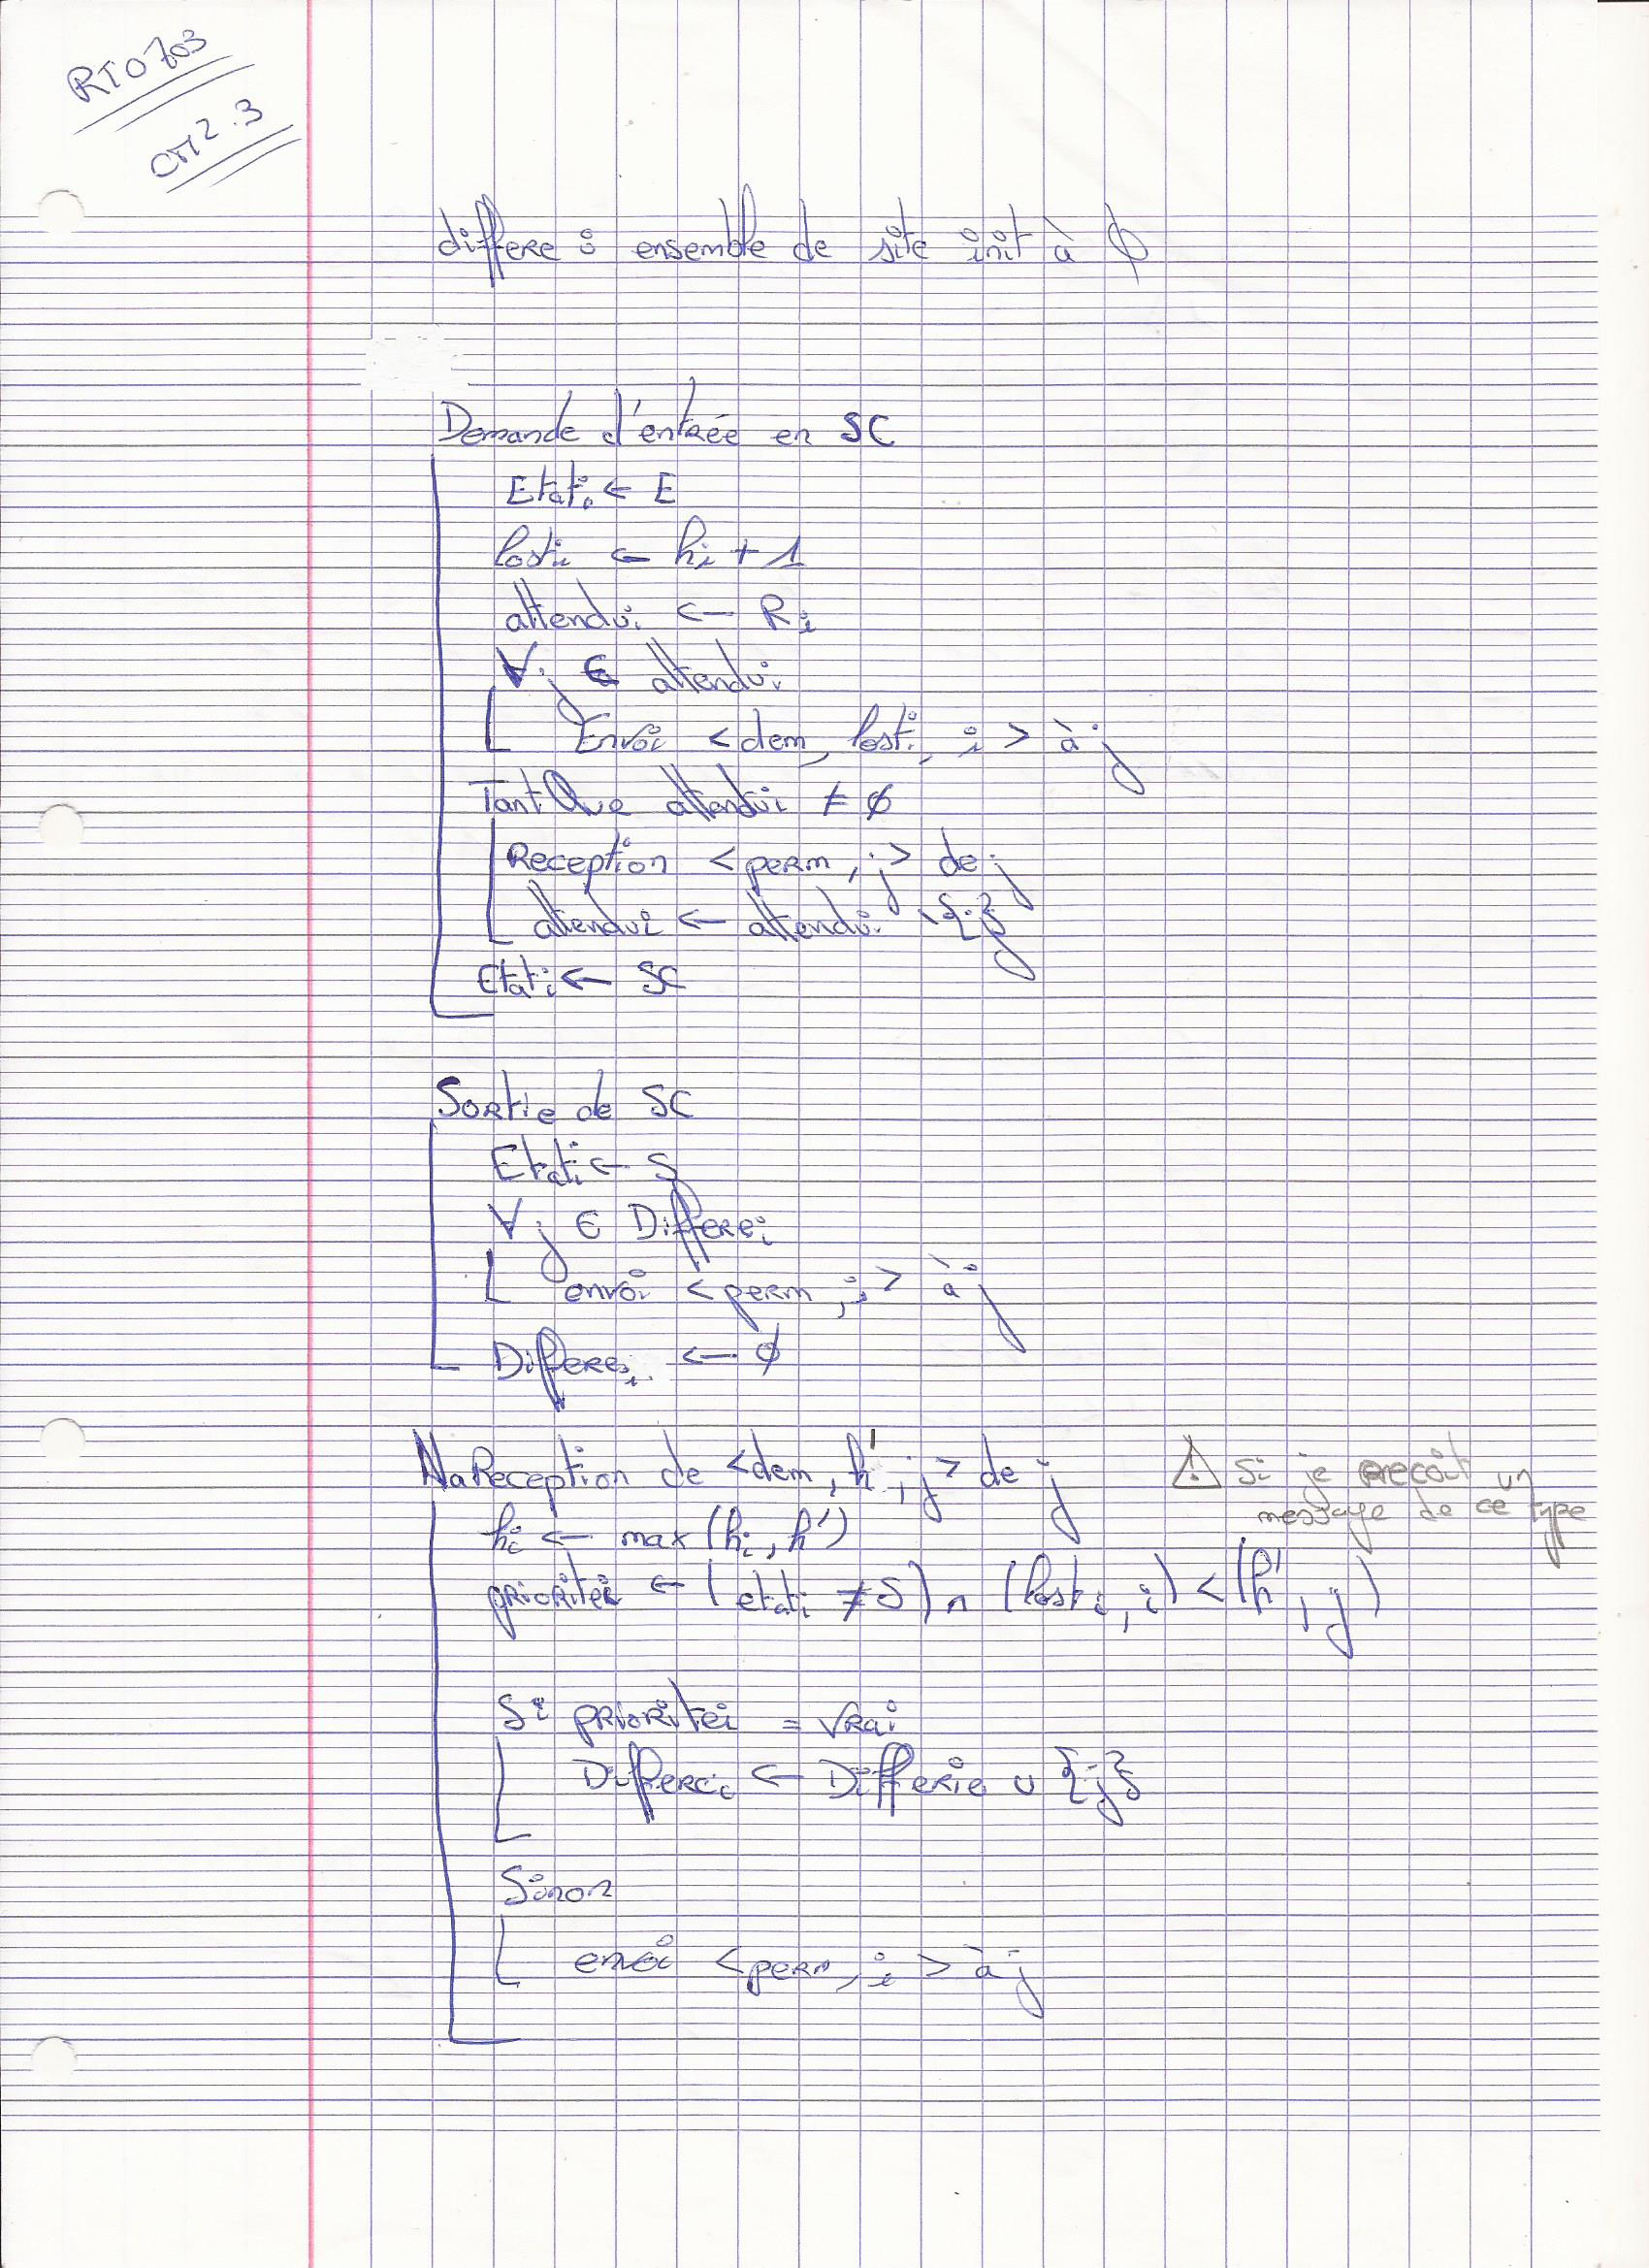 RT0703
CM2.3
differe : ensemble de site init à ∅
Demande d'entrée en SC
Etati ← E
lasti ← hi + 1
attendui ← Ri
∀ j ∈ attendui
Envoi <dem, lasti, i> à j
Tant Que attendui ≠ ∅
Reception <perm, j> de j
attendui ← attendui \ {j}
Etati ← SC
Sortie de SC
Etati ← S
∀ j ∈ Differei
envoi <perm, i> à j
Differei ← ∅
Reception de <dem, h', j> de j
⚠ Si je reçoit un
message de ce type
hi ← max (hi, h')
prioritéi ← (etati ≠ S) ∩ (lasti, i) < (h', j)
Si prioritei = vrai
Differei ← Differei ∪ {j}
Sinon
envoi <perm, i> à j